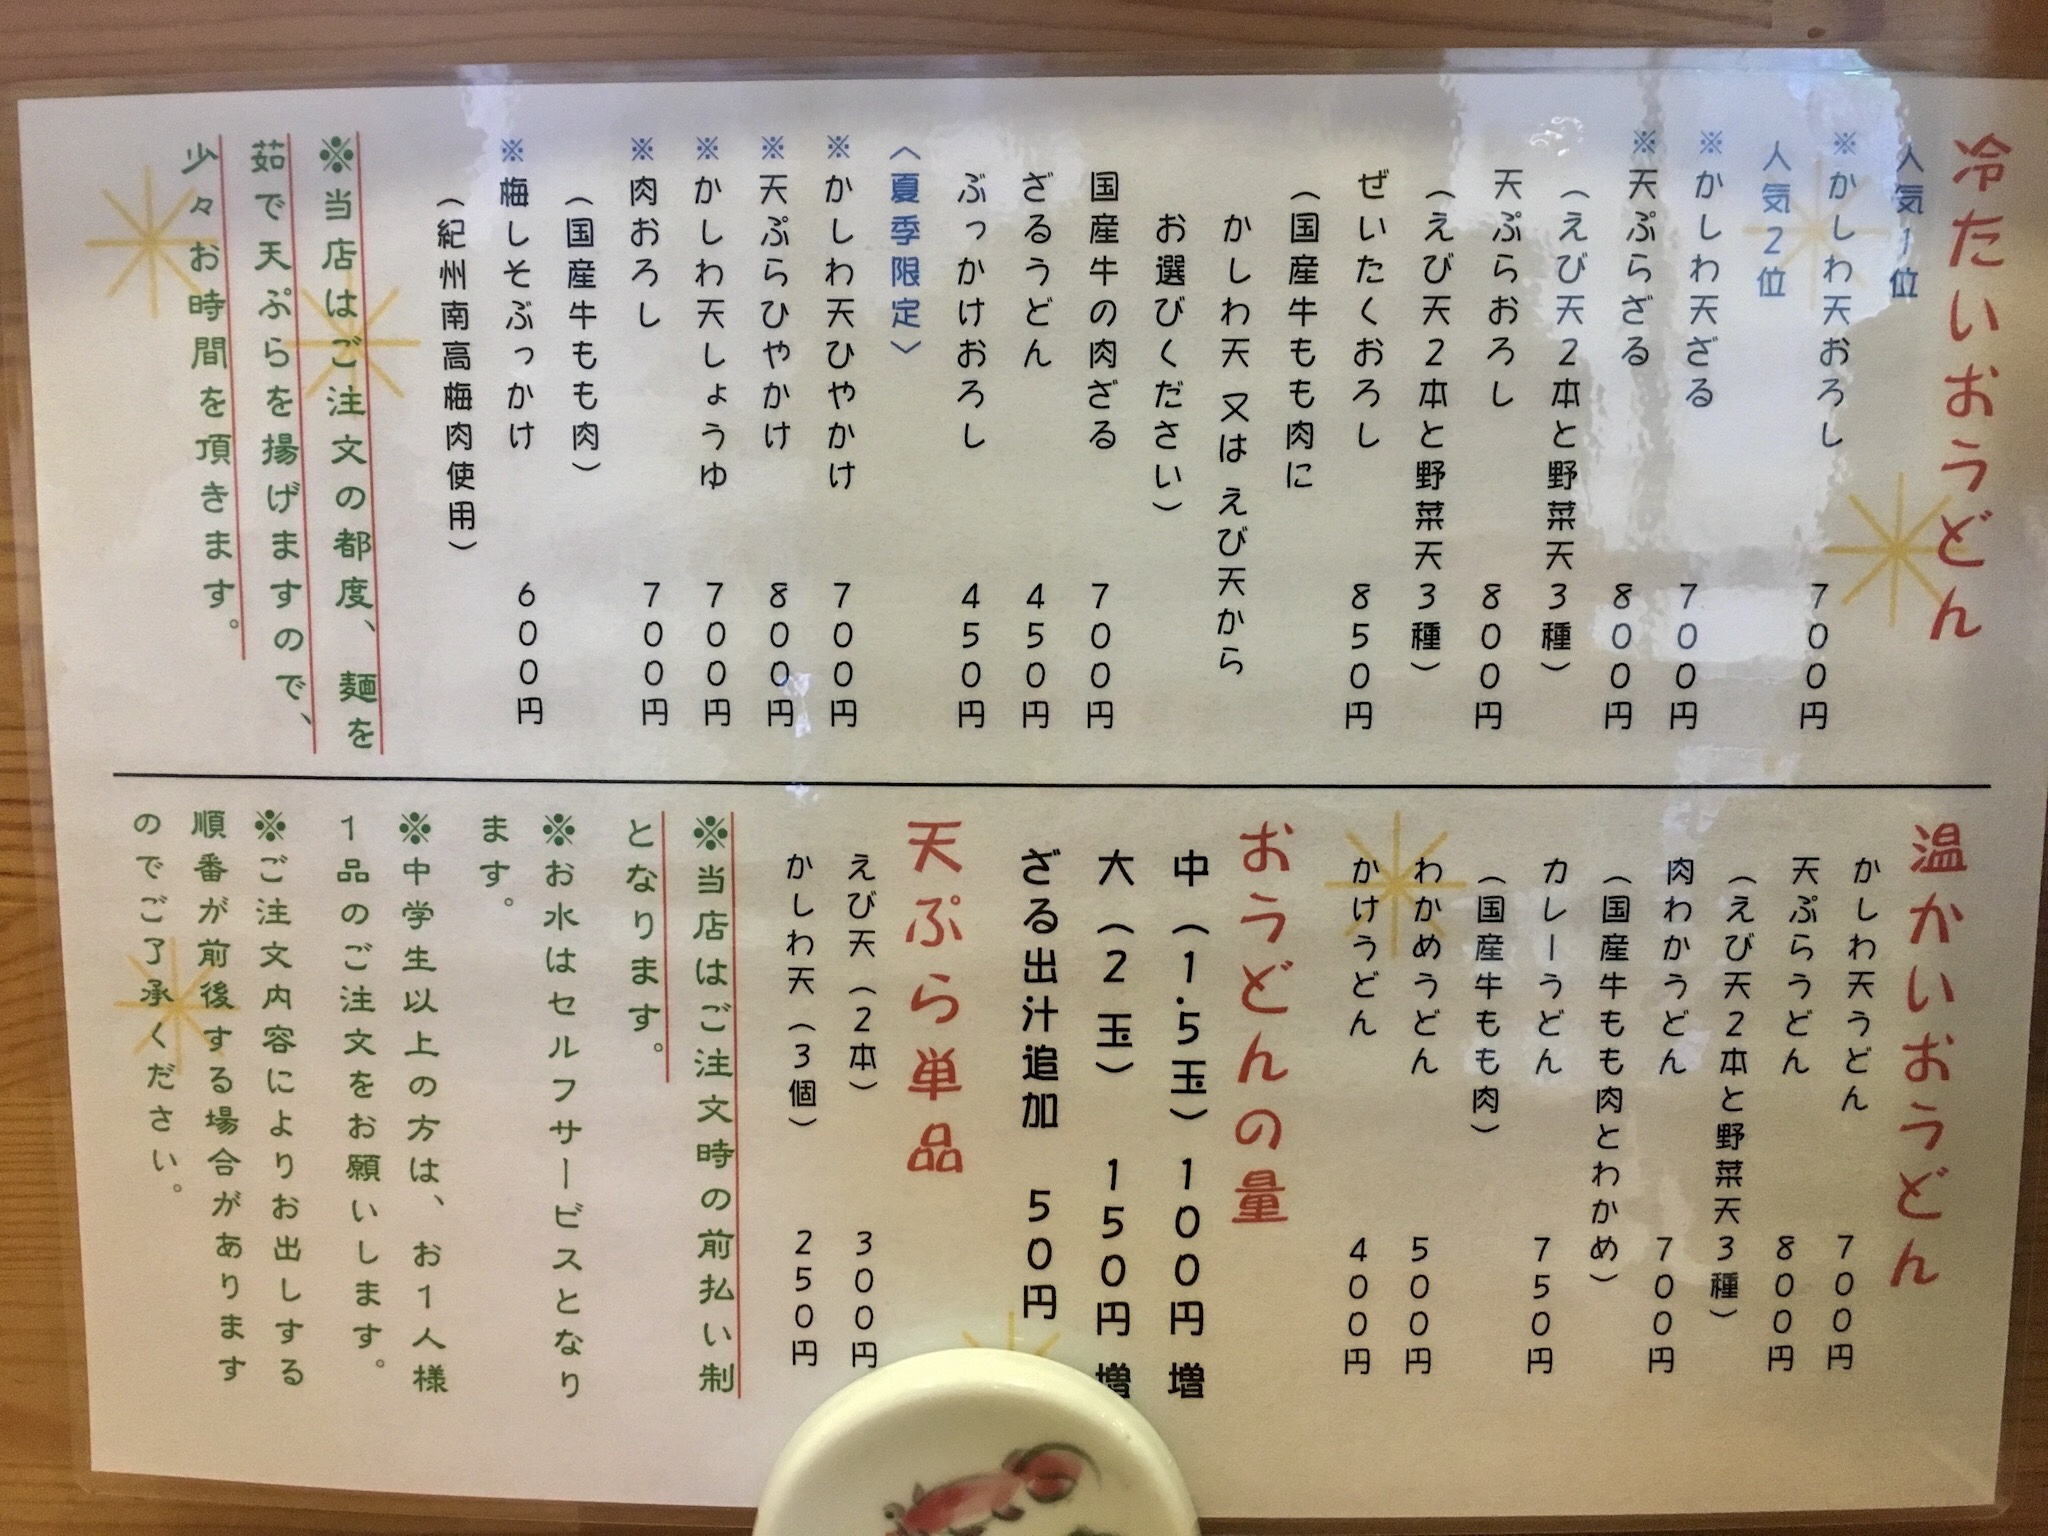 冷たいおうどん
人気1位
※かしわ天おろし 700円
人気2位
※かしわ天ざる 700円
※天ぷらざる 800円
(えび天2本と野菜天3種)
天ぷらおろし 800円
(えび天2本と野菜天3種)
ぜいたくおろし 850円
(国産牛もも肉に
かしわ天 又は えび天から
お選びください)
国産牛の肉ざる 700円
ざるうどん 450円
ぶっかけおろし 450円
〈夏季限定〉
※かしわ天ひやかけ 700円
※天ぷらひやかけ 800円
※かしわ天しょうゆ 700円
※肉おろし 700円
(国産牛もも肉)
※梅しそぶっかけ 600円
(紀州南高梅肉使用)
※当店はご注文の都度、麺を
茹で天ぷらを揚げますので、
少々お時間を頂きます。
温かいおうどん
かしわ天うどん 700円
天ぷらうどん 800円
(えび天2本と野菜天3種)
肉わかうどん 700円
(国産牛もも肉とわかめ)
カレーうどん 750円
(国産牛もも肉)
わかめうどん 500円
かけうどん 400円
おうどんの量
中(1.5玉) 100円増
大(2玉) 150円増
ざる出汁追加 50円
天ぷら単品
えび天(2本) 300円
かしわ天(3個) 250円
※当店はご注文時の前払い制
となります。
※お水はセルフサービスとなり
ます。
※中学生以上の方は、お1人様
1品のご注文をお願いします。
※ご注文内容によりお出しする
順番が前後する場合があります
のでご了承ください。